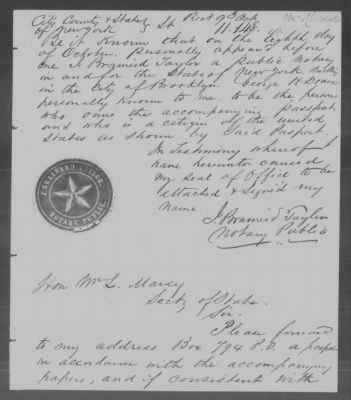 City County & State
of New York
11.148.
Be it Known that on the Eighth day
of October. Personally appeared before
me J Bramied Taylor a Public Notary
in and for the State of New York
in the City of Brooklyn. George
personally Known to me. to be the person
who owns the accompanying Passport,
and who is a citizen of the United
States as shown by said Pasport.
In Testimony whereof I
have hereunto caused
my seal of Office to be
attached & Signed my
name.
J. Bramied Taylor
Notary Public
NOTARY PUBLIC
Hon Wm L. Marcy
Secty of State.
Sir.
Please forward
to my address Box 794 P.O. a
in accordance with the accompanying
papers, and if consistent with